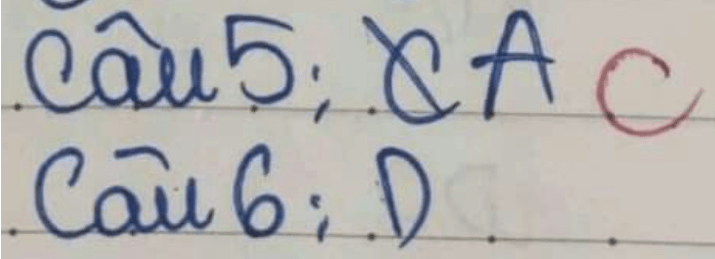 Câu 5: C A C
Câu 6: D